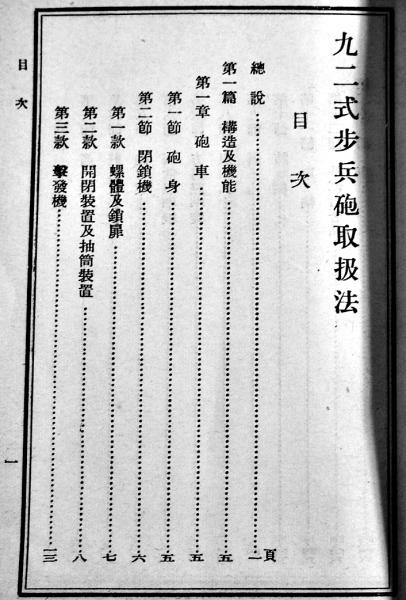 九二式步兵砲取扱法
目次
總說……一頁
第一篇 構造及機能……五
第一章 砲車……五
第一節 砲身……五
第二節 閉鎖機……六
第一款 螺體及鎖扉……七
第二款 開閉裝置及抽筒裝置……八
第三款 擊發機……一三
目次
一